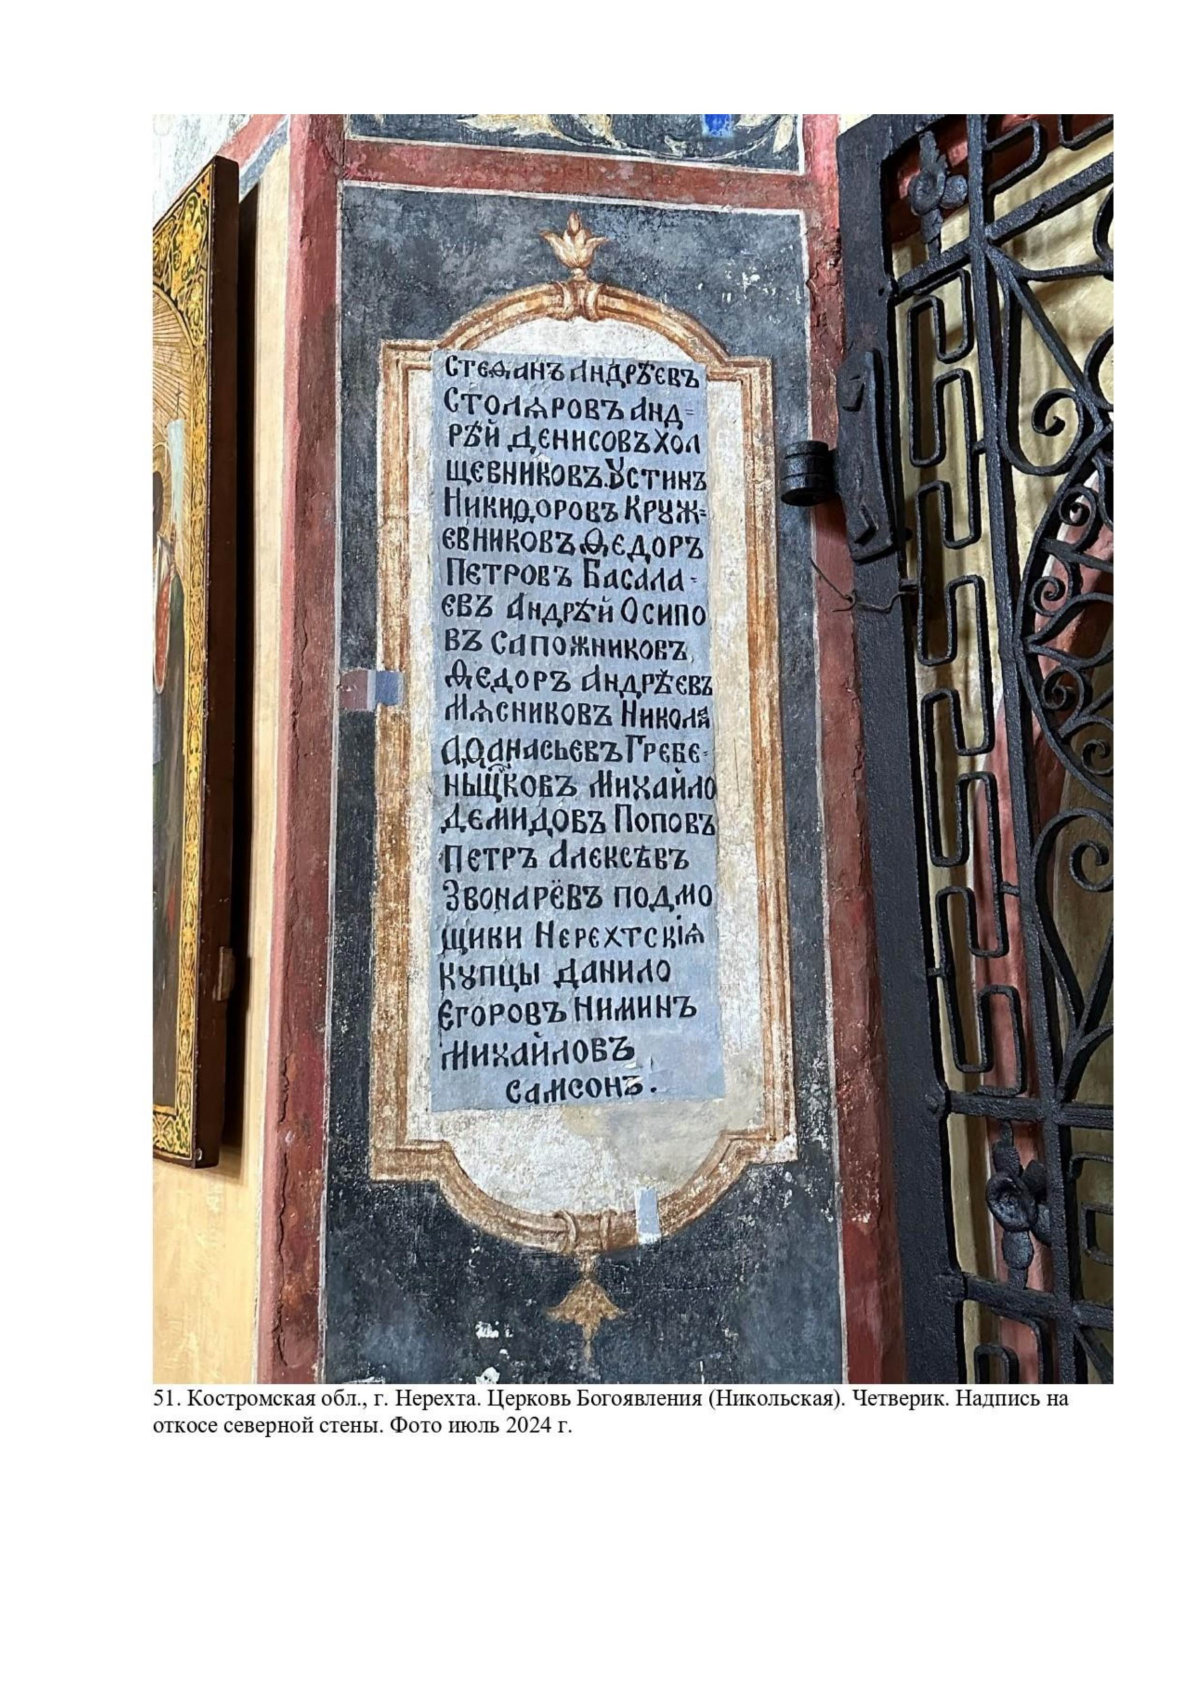 Стеѳанъ Андрѣевъ
Столѧровъ Анд=
рѣй Денисовъ Хол
щевниковъ. Устинъ
Никиѳоровъ Крꙋж=
евниковъ Ѳедоръ
Петровъ Басала-
евъ Андрѣй Осипо
въ Сапожниковъ,
Ѳедоръ Андрѣевъ
Мѧсниковъ Никола
Аѳанасьевъ Гребе-
ныщиковъ Михайло
Демидовъ Поповъ
Петръ Алексѣвъ
Звонарёвъ подмо
щики Нерехтскіѧ
кꙋпцы Данило
Егоровъ Ниминъ
Михайловъ
Самсонъ.
51. Костромская обл., г. Нерехта. Церковь Богоявления (Никольская). Четверик. Надпись на
откосе северной стены. Фото июль 2024 г.